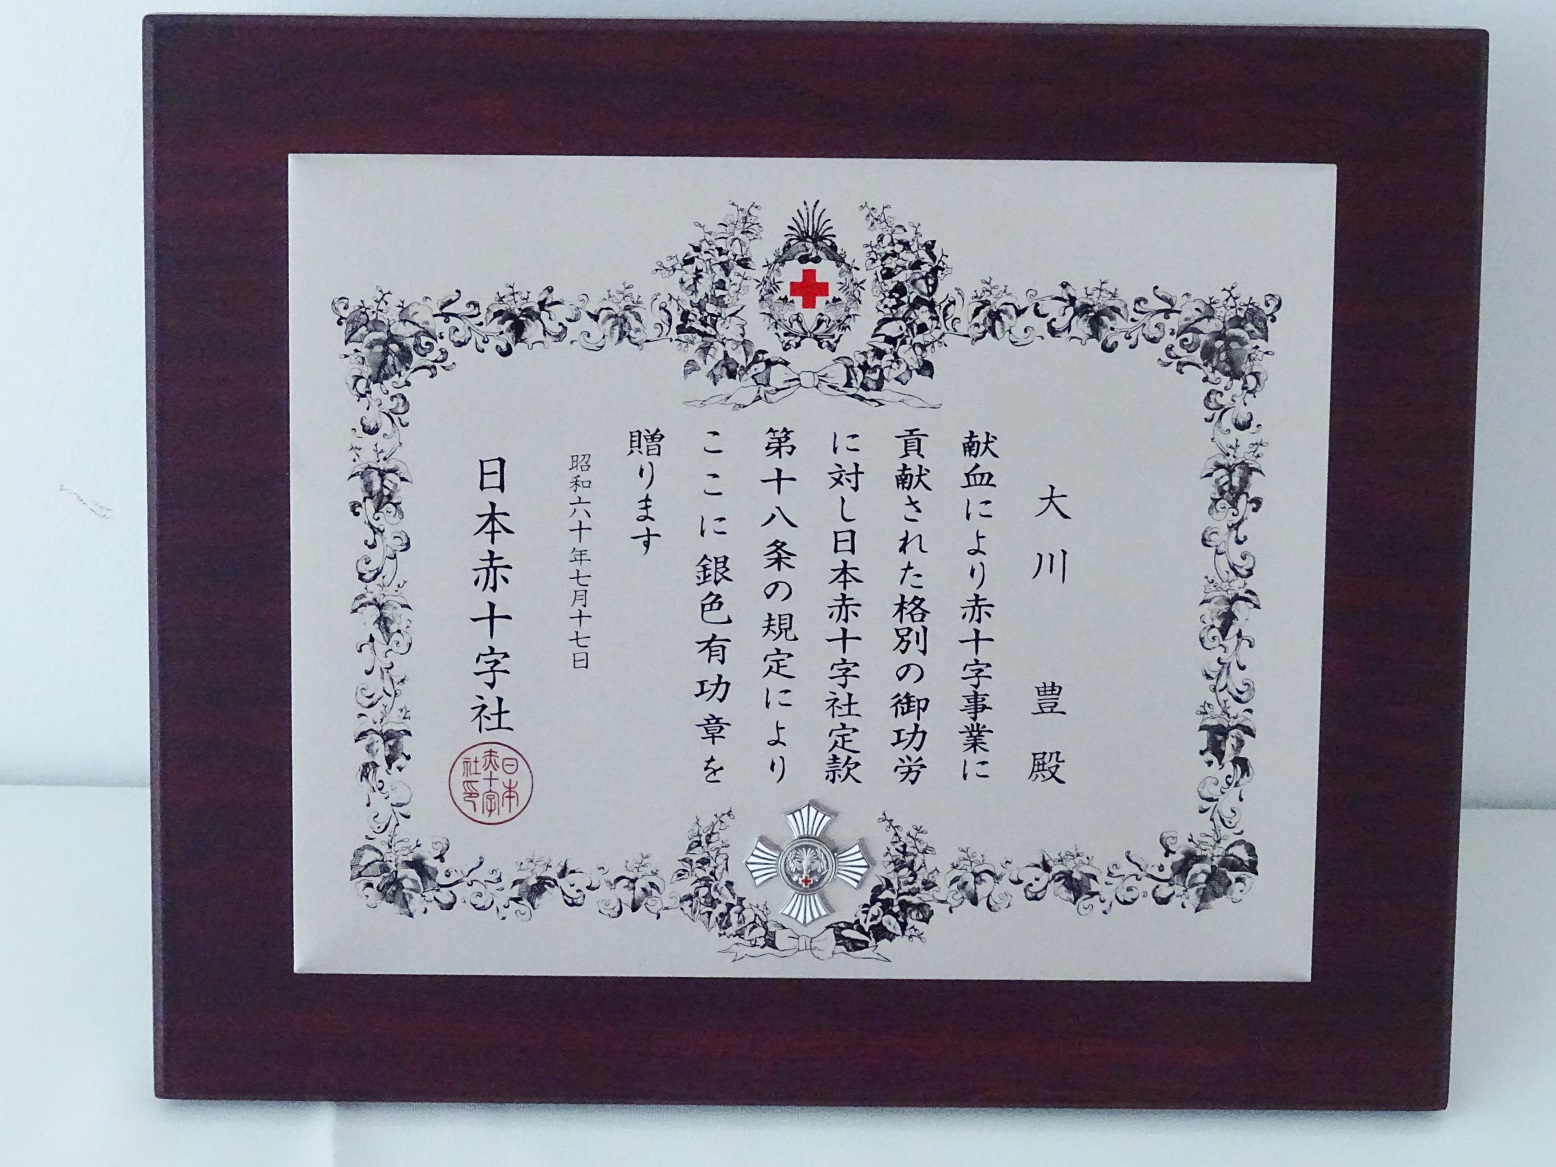 大川 豊殿
献血により赤十字事業に
貢献された格別の御功労
に対し日本赤十字社定款
第十八条の規定により
ここに銀色有功章を
贈ります
昭和六十年七月十七日
日本赤十字社
日本
赤十字
社印